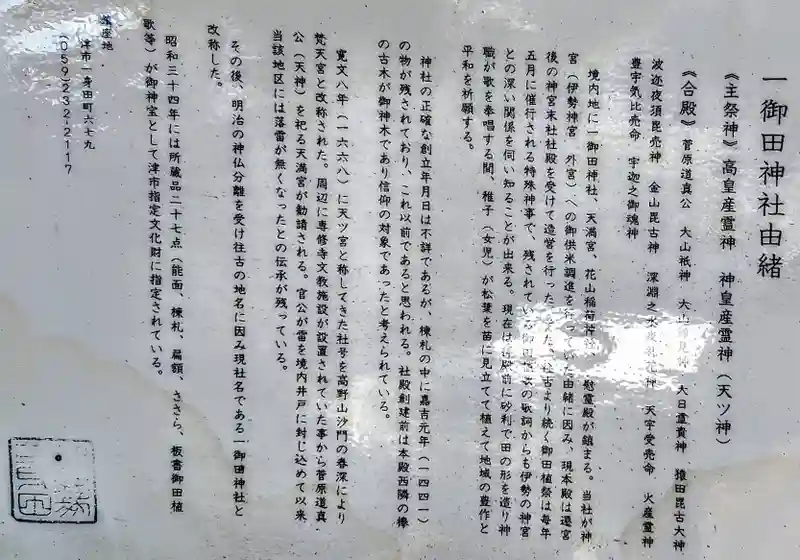 一御田神社由緒
《主祭神》高皇産霊神 神皇産霊神(天ツ神)
《合殿》菅原道真公 大山祇神 大山 神 大日孁貴神 猿田毘古大神
波迩夜須毘売神 金山毘古神 深淵之水夜礼花神 天宇受売命 火産霊神
豊宇気比売命 宇迦之御魂神
境内地に一御田神社、天満宮、花山稲荷神社、 慰霊殿が鎮まる。当社が神
宮(伊勢神宮 外宮)への御供米調進を行っていた由緒に因み、現本殿は遷宮
後の神宮末社社殿を受けて造営を行った。また、往古より続く御田植祭は毎年
五月に催行される特殊神事で、残されている御田植女の歌詞からも伊勢の神宮
との深い関係を伺い知ることが出来る。現在は社殿前に砂利で田の形を造り神
職が歌を奉唱する間、稚子(女児)が松葉を苗に見立てて植えて地域の豊作と
平和を祈願する。
神社の正確な創立年月日は不詳であるが、棟札の中に嘉吉元年(一四四一)
の物が残されており、これ以前であると思われる。社殿創建前は本殿西隣の欅
の古木が御神木であり信仰の対象であったと考えられている。
寛文八年(一六六八)に天ツ宮と称してきた社号を高野山沙門の春深により
梵天宮と改称された。周辺に専修寺文教施設が設置されていた事から菅原道真
公(天神)を祀る天満宮が勧請される。官公が雷を境内井戸に封じ込めて以来、
当該地区には落雷が無くなったとの伝承が残っている。
その後、明治の神仏分離を受け往古の地名に因み現社名である一御田神社と
改称した。
昭和三十四年には所蔵品二十七点(能面、棟札、扁額、ささら、板書御田植
歌等)が御神宝として津市指定文化財に指定されている。
鎮座地
津市一身田町六七九
(059-232-2117)